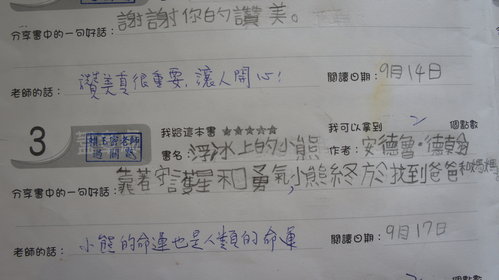 謝謝你的讚美。
分享書中的一句好話：
老師的話： 讚美真很重要,讓人開心! 閱讀日期： 9月14日
3 我給這本書 ★★★★★ 我可以拿到 2 個點數
書名： 浮冰上的小熊 作者： 安德魯·德翰
分享書中的一句好話： 靠著守護星和勇氣,小熊終於找到爸爸和媽媽
老師的話： 小熊的命運也是人類的命運 閱讀日期： 9月17日